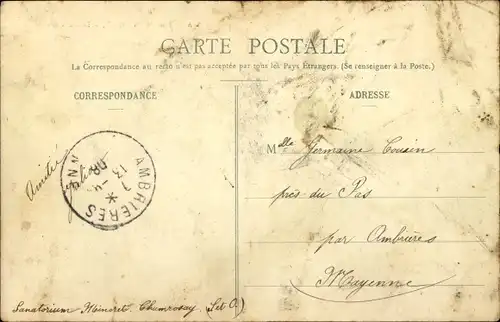 CARTE POSTALE
La Correspondance au recto n'est pas acceptée par tous les Pays Étrangers. (Se renseigner à la Poste.)
CORRESPONDANCE
ADRESSE
Mlle Germaine Cousin
près du Pas
par Ambrières
Mayenne
AMBRIERES
13
Sanatorium Minoret. Champrosay. (Set O.)